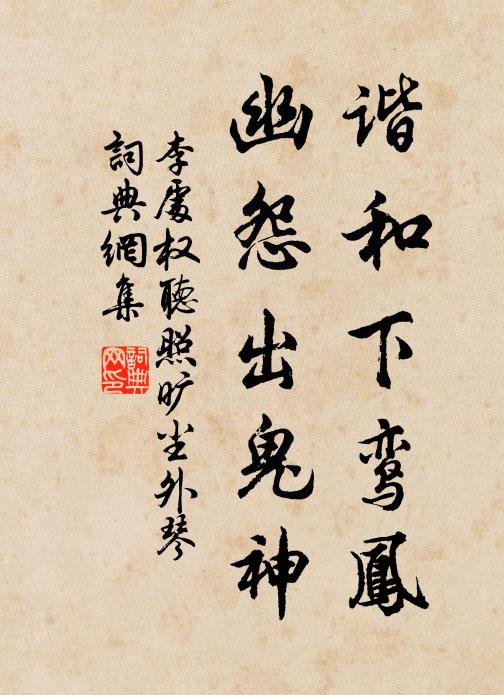 谐和下鸾鳳
幽怨出鬼神
李處权聽照旷尘外琴
詞典網集
詞典网印